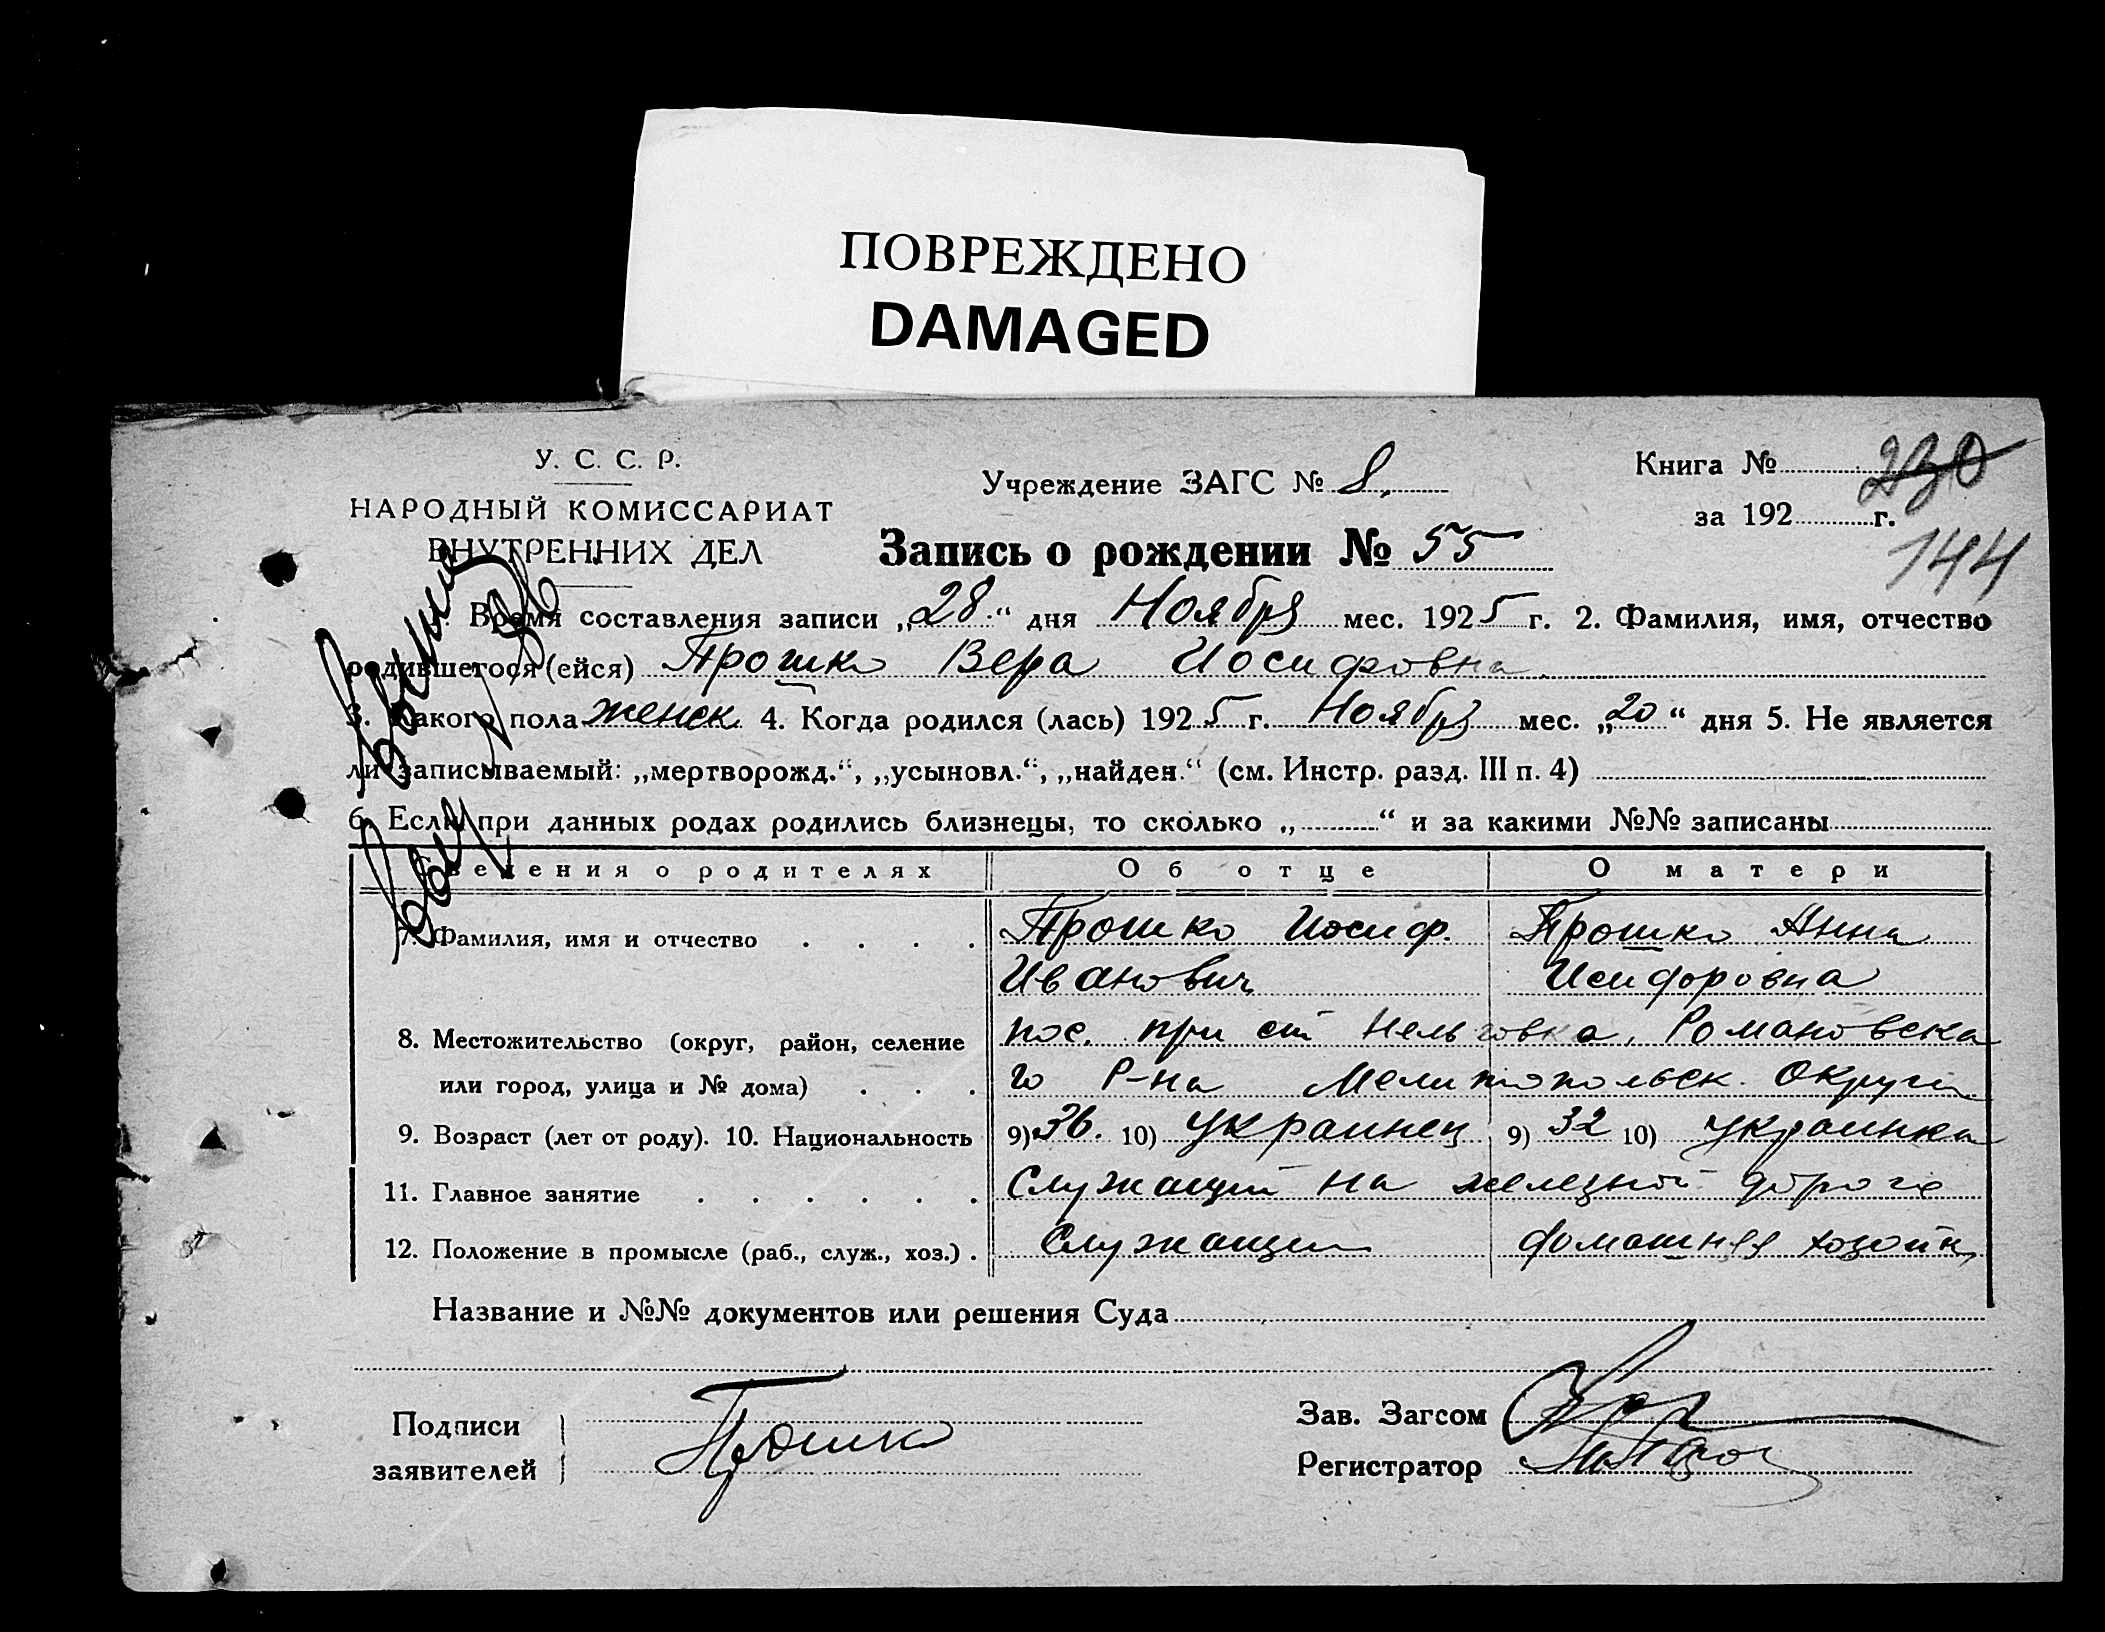 ПОВРЕЖДЕНО
DAMAGED
У. С. С. Р.
НАРОДНЫЙ КОМИССАРИАТ
ВНУТРЕННИХ ДЕЛ
Учреждение ЗАГС № 8.
Книга № 230
за 192 г.
144
Запись о рождении № 55
1. Время составления записи „28“ дня Ноября мес. 1925 г. 2. Фамилия, имя, отчество
родившегося (ейся) Прошко Вера Иосифовна
3. Какого пола женск 4. Когда родился (лась) 1925 г. Ноября мес. „20“ дня 5. Не является
ли записываемый: „мертворожд.“, „усыновл.“, „найден.“ (см. Инстр. разд. III п. 4)
6. Если при данных родах родились близнецы, то сколько „ “ и за какими №№ записаны
Сведения о родителях Об отце О матери
7. Фамилия, имя и отчество Прошко Иосиф. Прошко Анна
Иванович Исидоровна
8. Местожительство (округ, район, селение пос. при ст Нельговка, Романовска
или город, улица и № дома) го Р-на Мелитопольск. Округа
9. Возраст (лет от роду). 10. Национальность 9) 36. 10) Украинец 9) 32 10) Украинка
11. Главное занятие Служащий на железной дороге
12. Положение в промысле (раб., служ., хоз.) Служащий домашняя хозяйк
Название и №№ документов или решения Суда
Подписи
заявителей
Прошко
Зав. Загсом
Регистратор